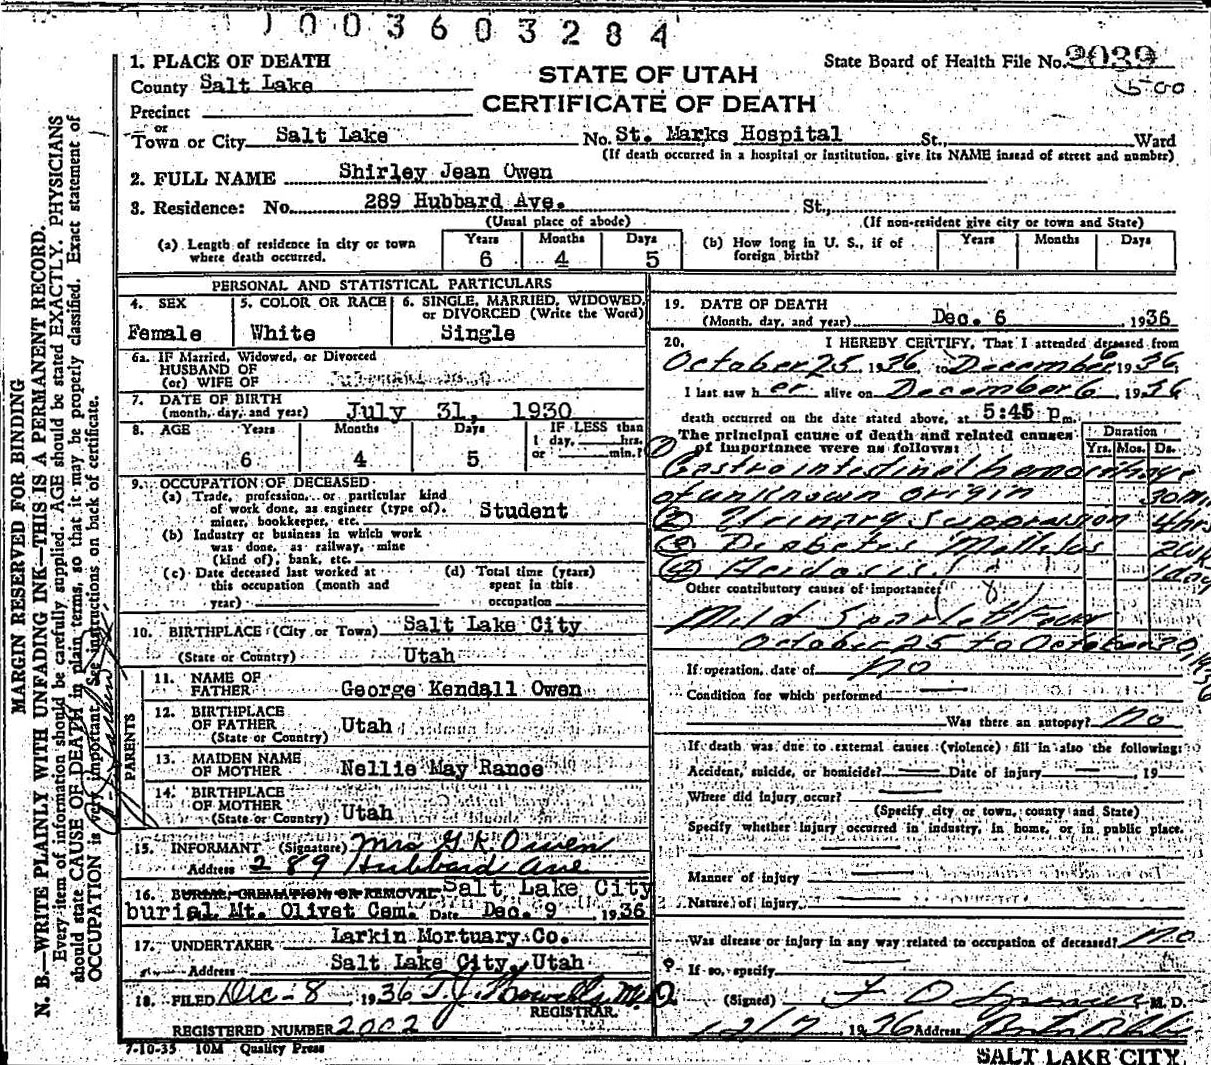 1003603284
1. PLACE OF DEATH
County Salt Lake
Precinct
or
Town or City Salt Lake
STATE OF UTAH
CERTIFICATE OF DEATH
State Board of Health File No. 2039
500
No. St. Marks Hospital St., Ward
(If death occurred in a hospital or institution, give its NAME insead of street and number)
2. FULL NAME Shirley Jean Owen
3. Residence: No. 289 Hubbard Ave. St.,
(Usual place of abode) (If non-resident give city or town and State)
(a) Length of residence in city or town where death occurred. Years 6 Months 4 Days 5
(b) How long in U. S., if of foreign birth? Years Months Days
PERSONAL AND STATISTICAL PARTICULARS
4. SEX Female
5. COLOR OR RACE White
6. SINGLE, MARRIED, WIDOWED, or DIVORCED (Write the Word) Single
6a. IF Married, Widowed, or Divorced
HUSBAND OF
(or) WIFE OF
7. DATE OF BIRTH
(month, day, and year) July 31, 1930
8. AGE Years 6 Months 4 Days 5
IF LESS than 1 day, hrs. or min.?
9. OCCUPATION OF DECEASED
(a) Trade, profession, or particular kind of work done, as engineer (type of), miner, bookkeeper, etc. Student
(b) Industry or business in which work was done, as railway, mine (kind of), bank, etc.
(c) Date deceased last worked at this occupation (month and year)
(d) Total time (years) spent in this occupation
10. BIRTHPLACE (City or Town) Salt Lake City
(State or Country) Utah
PARENTS
11. NAME OF FATHER George Kendall Owen
12. BIRTHPLACE OF FATHER (State or Country) Utah
13. MAIDEN NAME OF MOTHER Nellie May Rance
14. BIRTHPLACE OF MOTHER (State or Country) Utah
15. INFORMANT (Signature) Mrs G. K. Owen
Address 289 Hubbard Ave
16. BURIAL, CREMATION OR REMOVAL Salt Lake City
burial Mt. Olivet Cem. Date Dec. 9 1936
17. UNDERTAKER Larkin Mortuary Co.
Address Salt Lake City, Utah
18. FILED Dec-8 1936 T. J. Howells M.D.
REGISTRAR.
REGISTERED NUMBER 2002
7-10-35 10M Quality Press
19. DATE OF DEATH
(Month, day, and year) Dec. 6 1936
20. I HEREBY CERTIFY, That I attended deceased from
October 25 1936 to December 6 1936
I last saw her alive on December 6, 1936
death occurred on the date stated above, at 5:45 p.m.
The principal cause of death and related causes of importance were as follows:
Duration
Yrs. Mos. Ds.
(1) Gastrointestinal hemorrhage
of unknown origin 30 Min
(2) Urinary Suppression 4 hrs
(3) Diabetes Mellitus 2 wks
(4) Acidosis 1 day
Other contributory causes of importance:
Mild Scarlet Fever
October 25 to October 30, 1936
If operation, date of no
Condition for which performed
Was there an autopsy? no
If death was due to external causes (violence) fill in also the following:
Accident, suicide, or homicide? Date of injury , 19
Where did injury occur?
(Specify city or town, county and State)
Specify whether injury occurred in industry, in home, or in public place.
Manner of injury
Nature of injury
Was disease or injury in any way related to occupation of deceased? no
If so, specify
(Signed) M. D.
12/7 1936 Address
SALT LAKE CITY
MARGIN RESERVED FOR BINDING
N. B.—WRITE PLAINLY WITH UNFADING INK—THIS IS A PERMANENT RECORD.
Every item of information should be carefully supplied. AGE should be stated EXACTLY. PHYSICIANS
should state CAUSE OF DEATH in plain terms, so that it may be properly classified. Exact statement of
OCCUPATION is very important. See instructions on back of certificate.